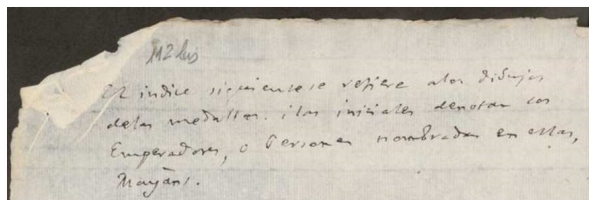 112 bis
El indice siguiente se refiere a los dibujos
de las medallas. i las iniciales denotan los
Emperadores, o Personas nombradas en ellas,
Mayáns.